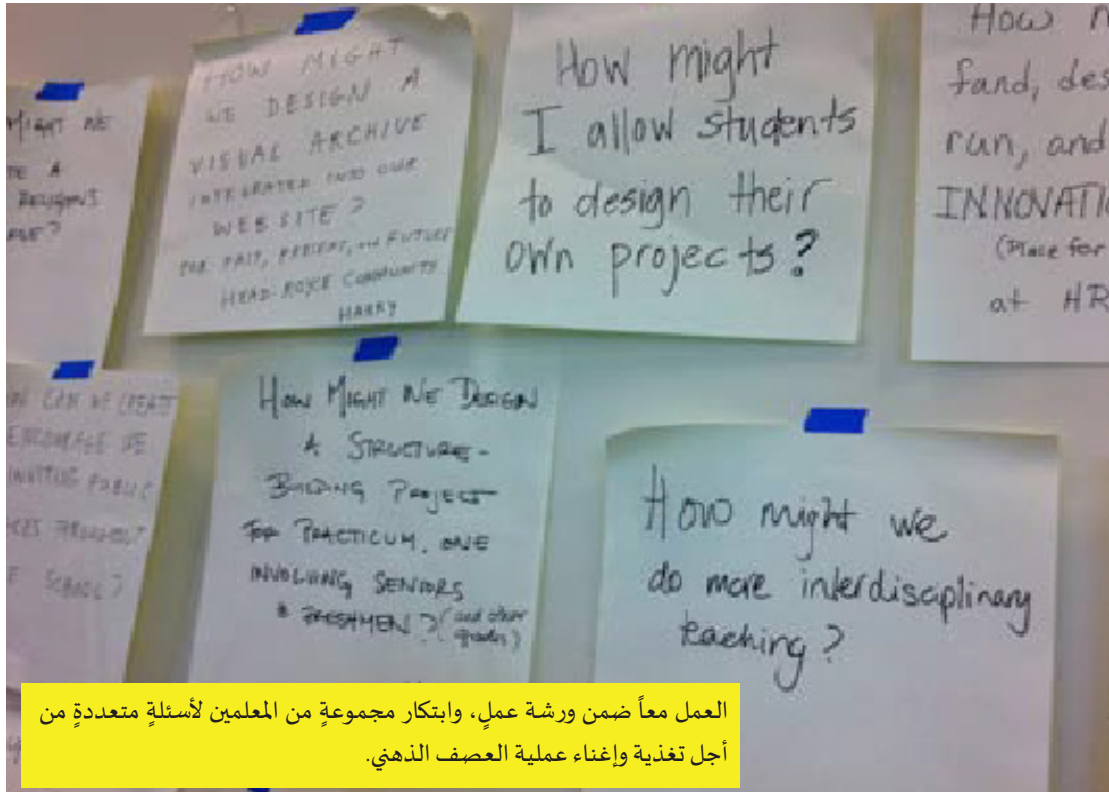 MIGHT WE
A
RELIGIONS
HOW MIGHT
WE DESIGN A
VISUAL ARCHIVE
INTEGRATED INTO OUR
WEBSITE?
FOR PAST, PRESENT, AND FUTURE
HEAD-ROYCE COMMUNITY
HARRY
How might
I allow students
to design their
own projects?
How
fund, des
run, and
INNOVATI
(Place for
at HR
CAN WE CREATE
ENCOURAGE
INVITING PUBLIC
SCHOOL?
How Might We Design
A Structure-
Building Project
For Practicum, one
involving seniors
& freshmen? (and other
grades)
How might we
do more interdisciplinary
teaching?
العمل معاً ضمن ورشة عملٍ، وابتكار مجموعةٍ من المعلمين لأسئلةٍ متعددةٍ من
أجل تغذية وإغناء عملية العصف الذهني.